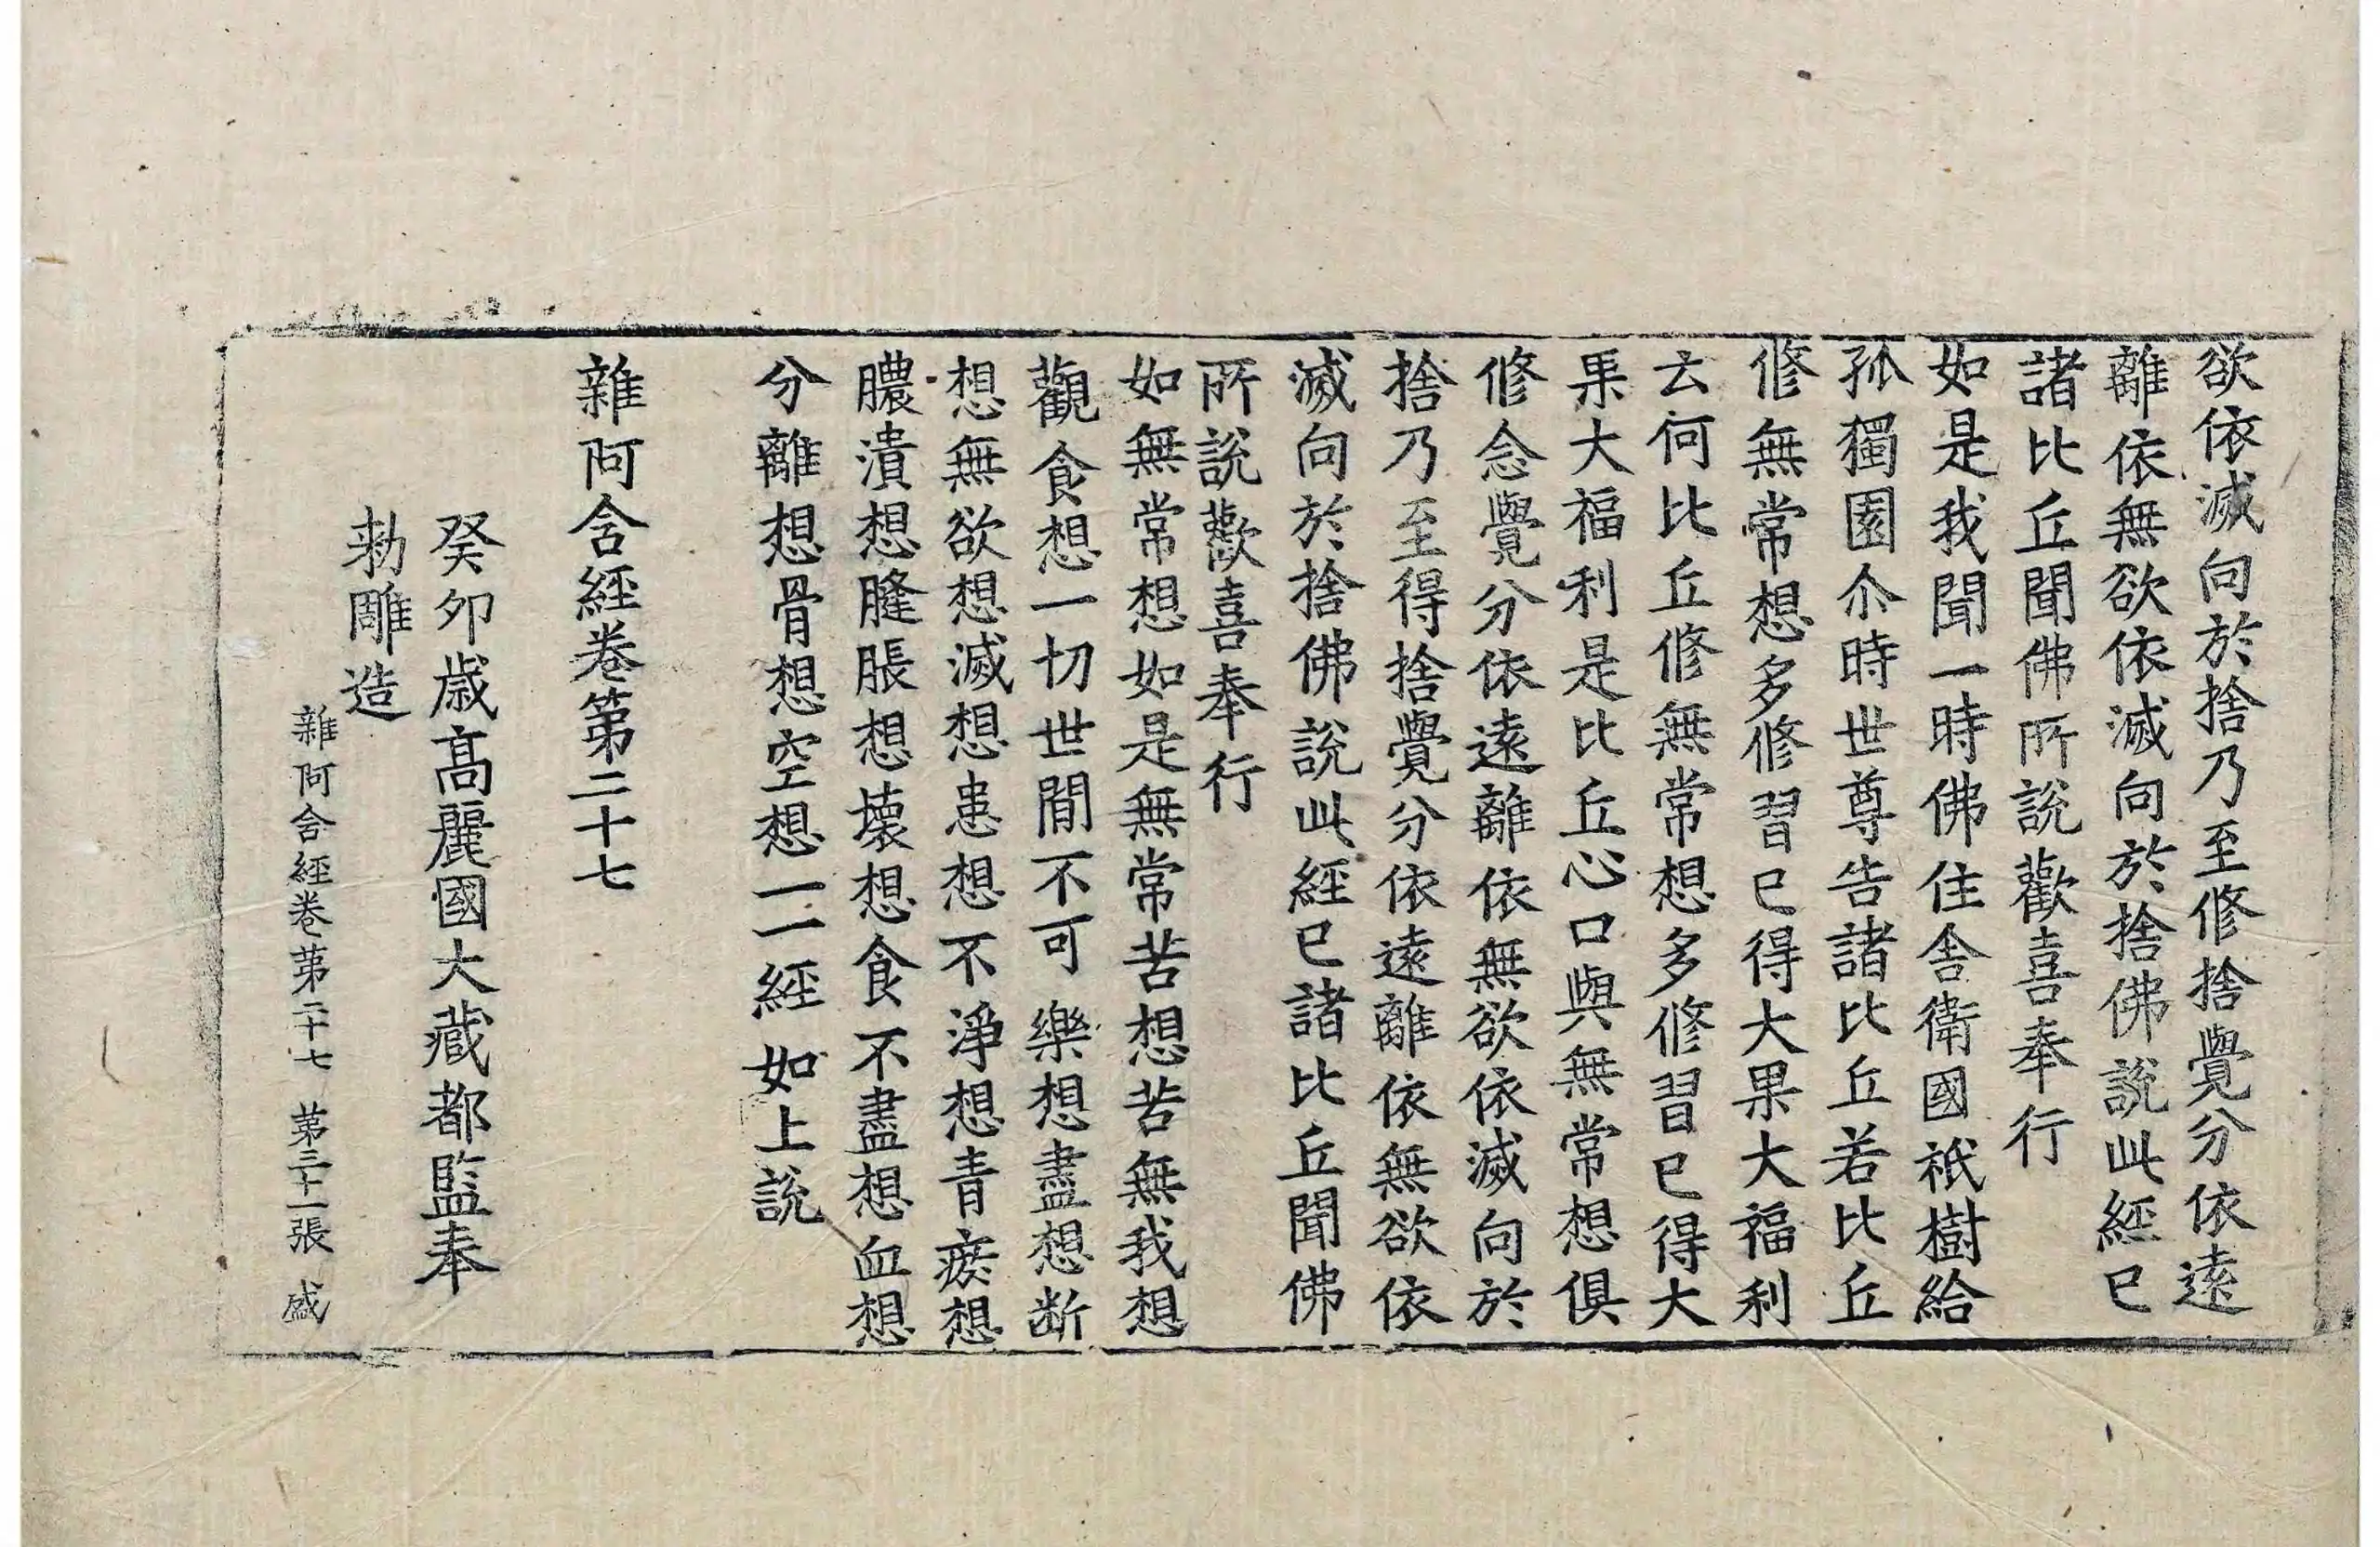 欲依滅向於捨乃至修捨覺分依遠
離依無欲依滅向於捨佛說此經已
諸比丘聞佛所說歡喜奉行
如是我聞一時佛住舍衛國祇樹給
孤獨園尒時世尊告諸比丘若比丘
修無常想多修習已得大果大福利
云何比丘修無常想多修習已得大
果大福利是比丘心口與無常想俱
修念覺分依遠離依無欲依滅向於
捨乃至得捨覺分依遠離依無欲依
滅向於捨佛說此經已諸比丘聞佛
所說歡喜奉行
如無常想如是無常苦想苦無我想
觀食想一切世間不可樂想盡想断
想無欲想滅想患想不淨想青瘀想
膿潰想膖脹想壞想食不盡想血想
分離想骨想空想一一經如上說
雜阿含經卷第二十七
癸卯歲高麗國大藏都監奉
勅雕造
雜阿含經卷第二十七 第三十一張 盛